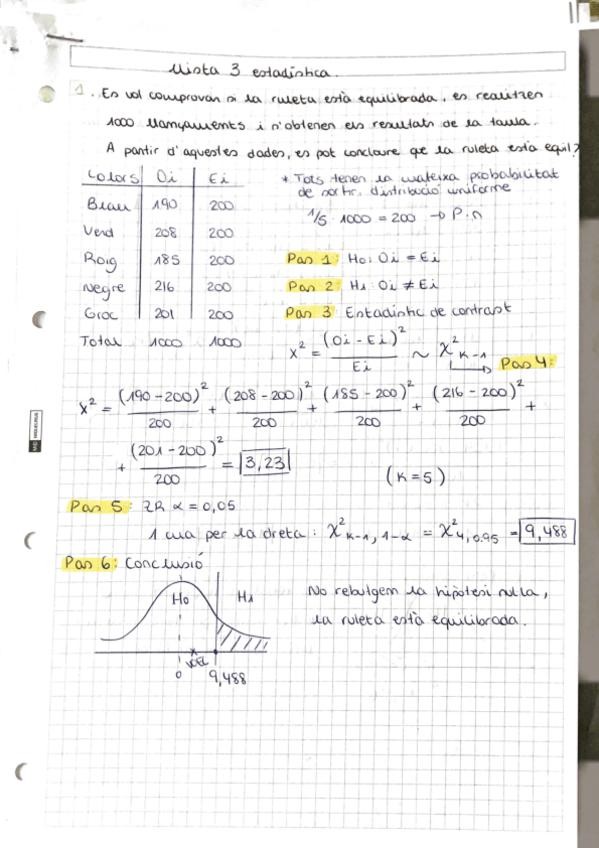 Llista 3 estadística.
1. Es vol comprovar si la ruleta està equilibrada, es realitzen
1000 llançaments i s'obtenen els resultats de la taula.
A partir d'aquestes dades, es pot concloure que la ruleta està equil?
Colors Oi Ei
Blau 190 200
Verd 208 200
Roig 185 200
Negre 216 200
Groc 201 200
Total 1000 1000
* Tots tenen la mateixa probabilitat
de sortir, distribució uniforme
1/5 · 1000 = 200 → P·n
Pas 1: H0: Oi = Ei
Pas 2: H1: Oi ≠ Ei
Pas 3: Estadístic de contrast
X² = (Oi - Ei)² / Ei ~ X²K-1
Pas 4:
X² = (190-200)²/200 + (208-200)²/200 + (185-200)²/200 + (216-200)²/200 +
+ (201-200)²/200 = 3,23
(K=5)
Pas 5: ZR α = 0,05
1 cua per la dreta: X²K-1, 1-α = X²4, 0.95 = 9,488
Pas 6: Conclusió
H0 H1
0 9,488
No rebutgem la hipòtesi nul·la,
la ruleta està equilibrada.